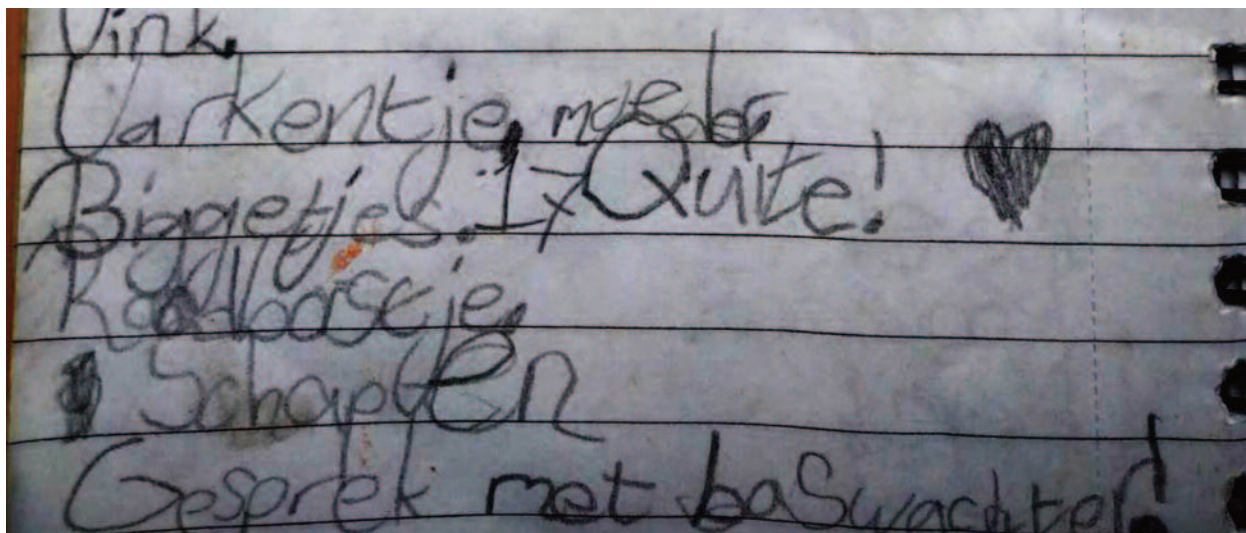 Vink.
Varkentje moeder
Biggetjes. 17 Quite!
Roodborstje.
Schapen
Gesprek met boswachter!